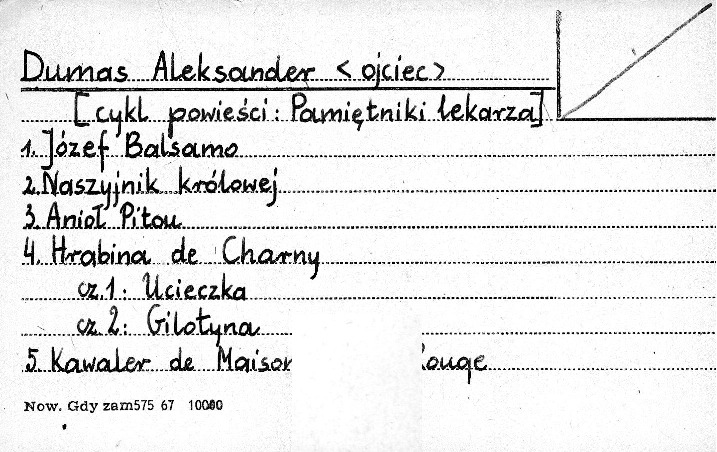 Dumas Aleksander <ojciec>
[cykl powieści: Pamiętniki lekarza]
1. Józef Balsamo
2. Naszyjnik królowej
3. Anioł Pitou
4. Hrabina de Charny
cz.1: Ucieczka
cz.2: Gilotyna
5. Kawaler de
Now. Gdy zam 575 67 10000